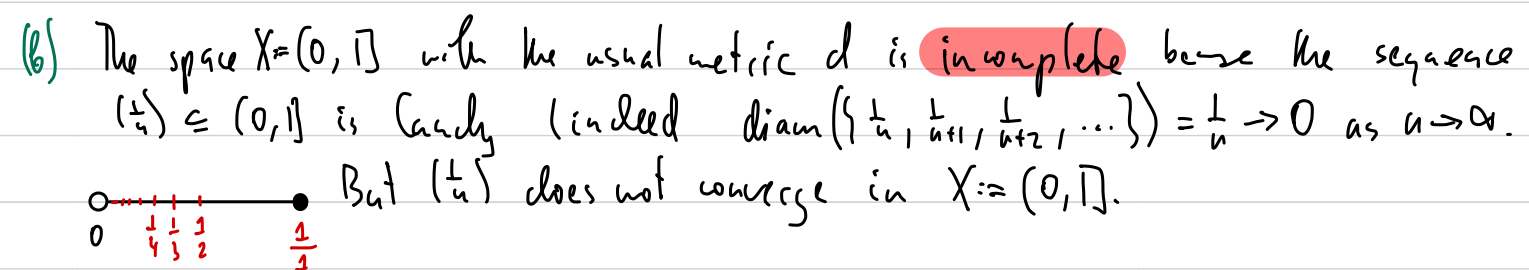 (b) The space X:=(0,1] with the usual metric d is incomplete because the sequence
(1/n) ⊆ (0,1] is Cauchy (indeed diam({1/n, 1/n+1, 1/n+2, ...}) = 1/n → 0 as n→∞.
But (1/n) does not converge in X:=(0,1].
0 1/4 1/3 1/2 1/1